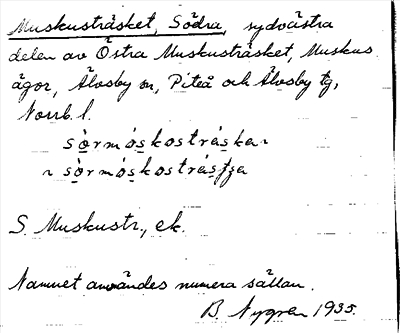 Muskusträsket, Södra, sydvästra
delen av Östra Muskusträsket, Muskus
ägor, Älvsby sn, Piteå och Älvsby tg,
Norrb. l.
sòrmóskostráska
~ sòrmóskostrásʃʒa
S. Muskustr., ek.
Namnet användes numera sällan.
B. Nygren 1935.